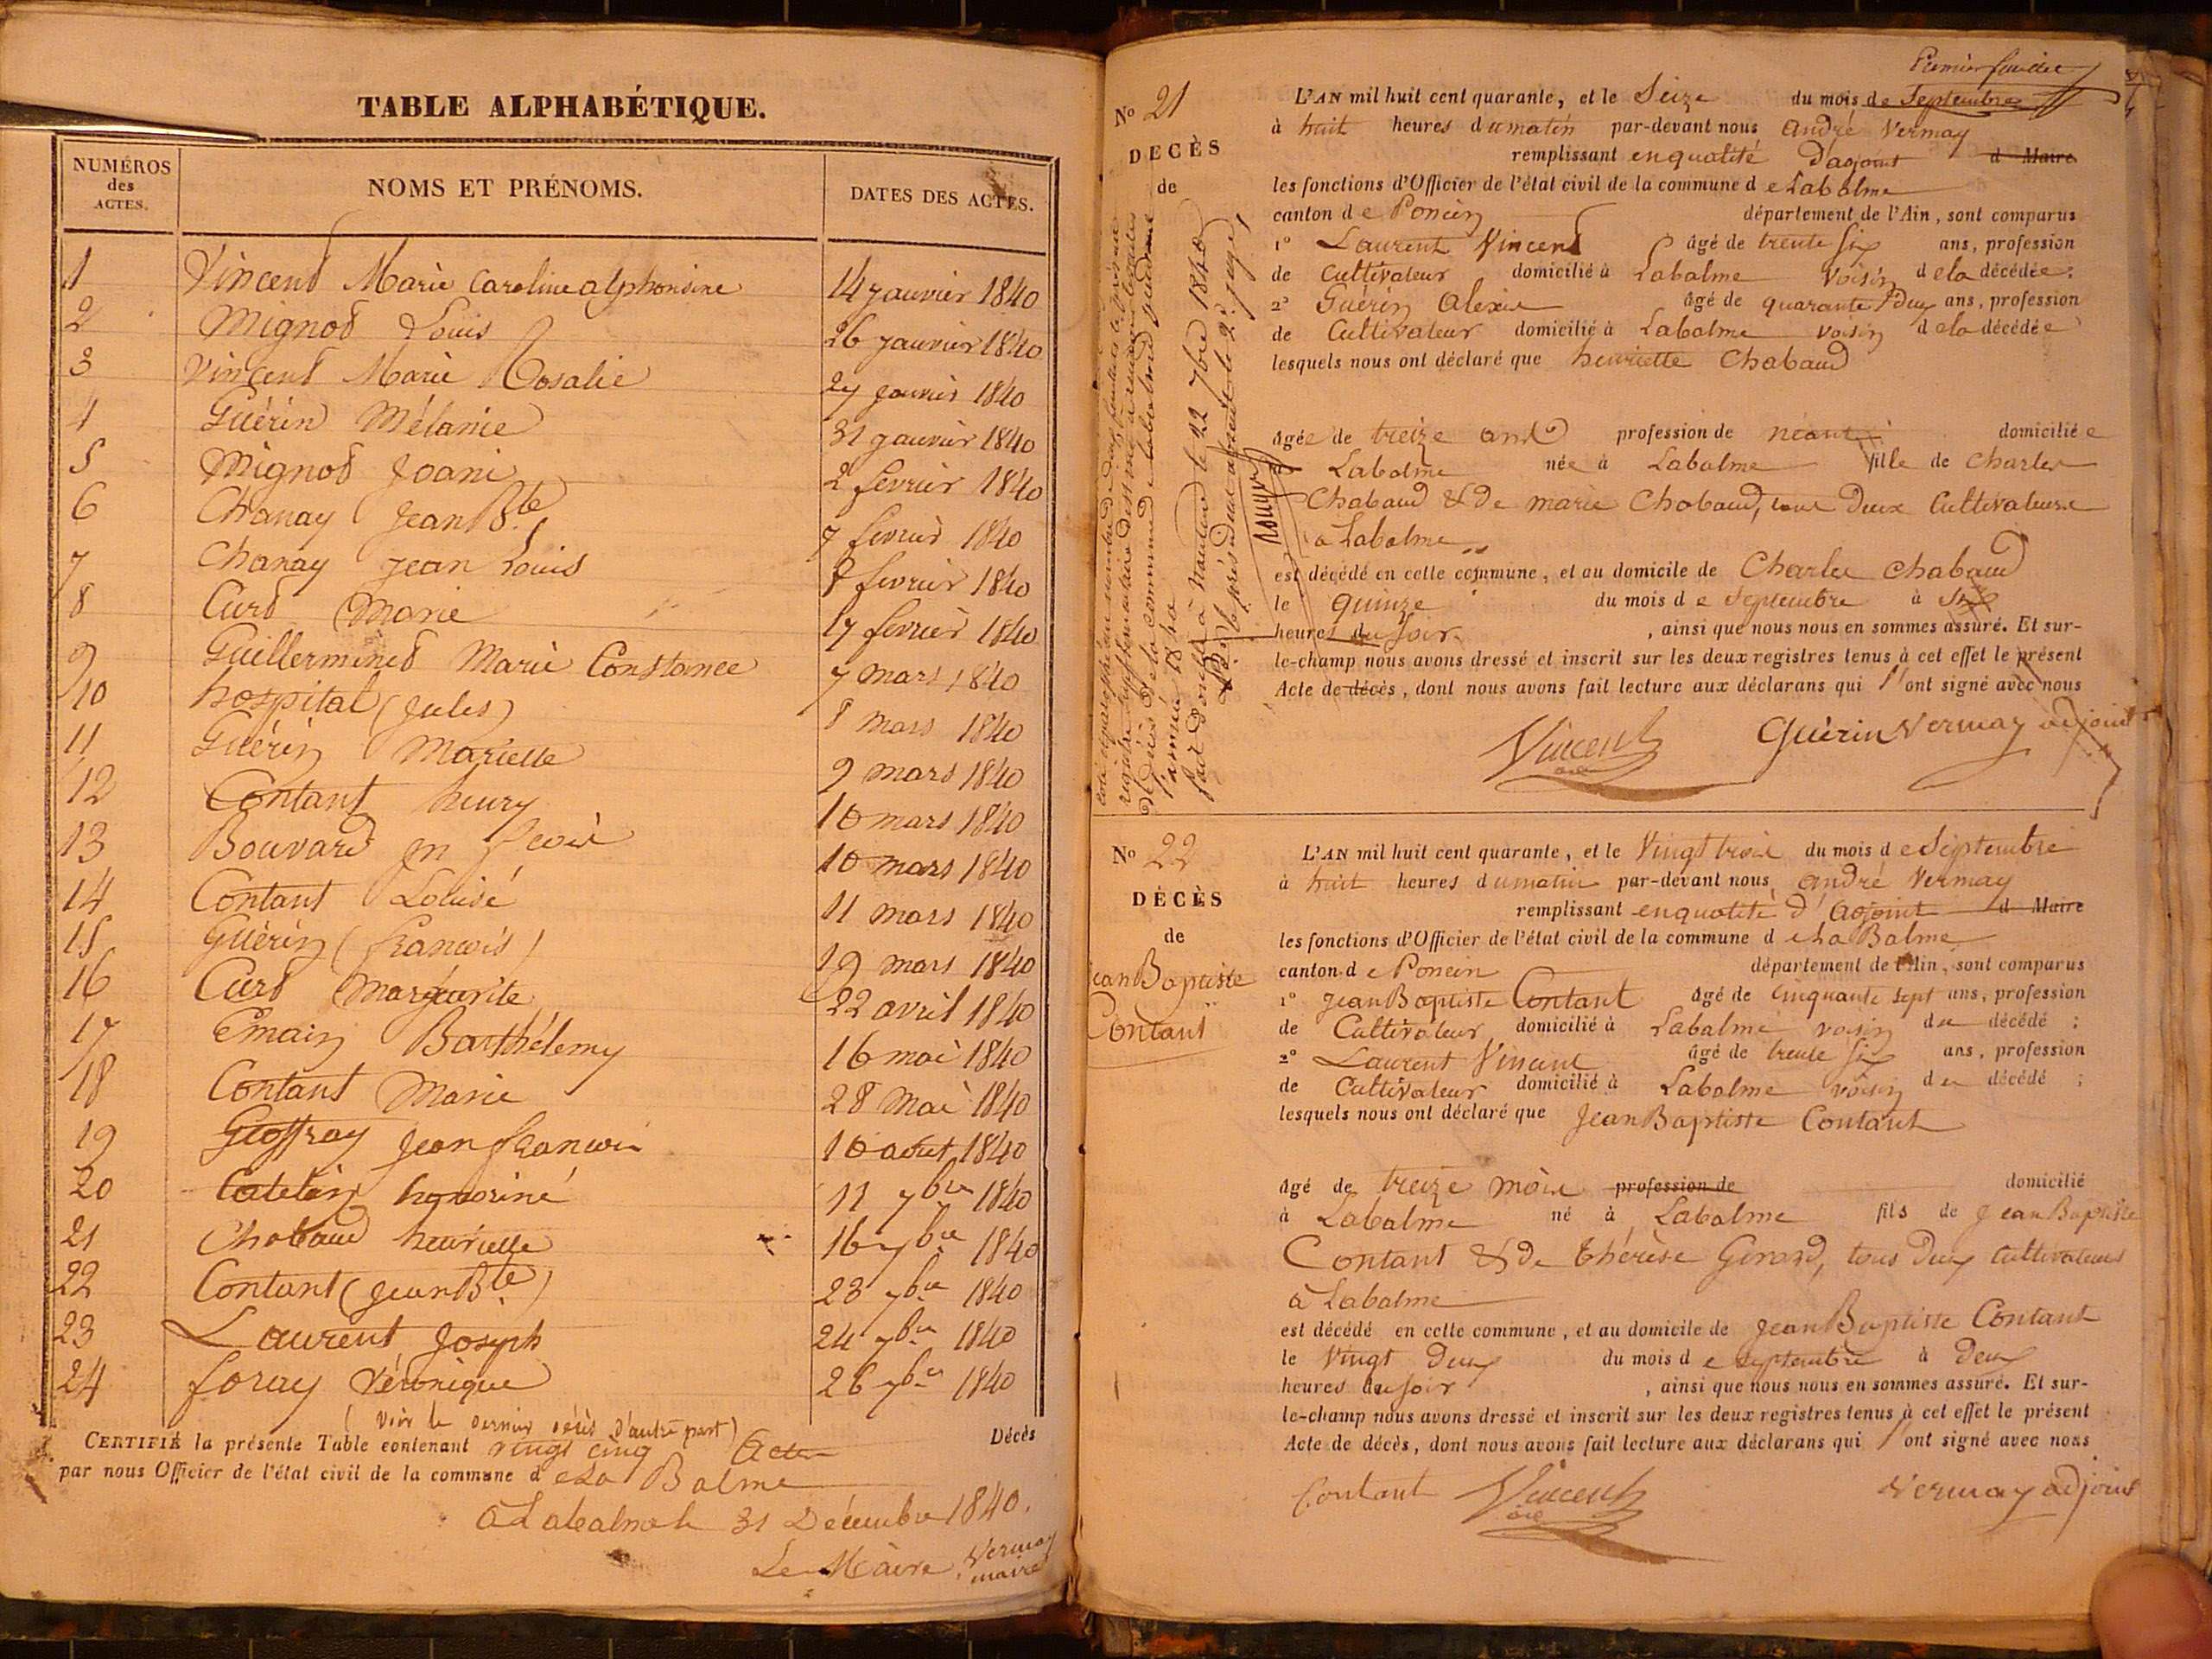 TABLE ALPHABÉTIQUE.
NUMÉROS des ACTES.
NOMS ET PRÉNOMS.
DATES DES ACTES.
1 Vincend Marie Caroline alphonsine 14 janvier 1840
2 Mignod Louis 26 janvier 1840
3 Vincend Marie Rosalie 27 janvier 1840
4 Guérin Mélanie 31 janvier 1840
5 Mignod Joani 2 fevrier 1840
6 Chanay Jean Bte 7 fevrier 1840
7 Chanay jean Louis 8 fevrier 1840
8 Curd Marie 17 fevrier 1840
9 Guillermined Marie Constance 7 mars 1840
10 hospital (jules) 8 mars 1840
11 Guérin Mariette 9 mars 1840
12 Contant henry 10 mars 1840
13 Bouvard 10 mars 1840
14 Contant Louise 11 mars 1840
15 Guérin (francois) 19 mars 1840
16 Curd Margeurite 22 avril 1840
17 Emain Barthélemy 16 mai 1840
18 Contant Marie 28 Mai 1840
19 Geoffray jean francois 10 aout 1840
20 Catelin honoriné 11 7bre 1840
21 Chabaud henriette 16 7bre 1840
22 Contant (jean Bte) 23 7bre 1840
23 Laurent Joseph 24 7bre 1840
24 foray Véronique 26 7bre 1840
(voir le dernier décès d'autre part)
CERTIFIÉ la présente Table contenant vingt cinq Actes Décès
par nous Officier de l'état civil de la commune de La Balme
à Labalme le 31 Décembre 1840.
Le Maire. Vermay
maire
Premier feuillet
No 21
DECÈS
de
L'AN mil huit cent quarante, et le Seize du mois de Septembre
à huit heures du matin par-devant nous André Vermay
remplissant en qualité d'adjoint d Maire
les fonctions d'Officier de l'état civil de la commune de Labalme
canton de Poncin département de l'Ain, sont comparus
1° Laurent Vincent âgé de trente Six ans, profession
de Cultivateur domicilié à Labalme voisin de la décédée;
2° Guérin Alexis âgé de quarante deux ans, profession
de Cultivateur domicilié à Labalme voisin de la décédée
lesquels nous ont déclaré que henriette Chabaud
âgée de treize ans profession de néant domiciliée
à Labalme née à Labalme fille de Charles
Chabaud & de marie Chabaud, tous deux Cultivateurs
à Labalme
est décédé en celle commune, et au domicile de Charles Chabaud
le quinze du mois de Septembre à Six
heures du Soir, ainsi que nous nous en sommes assuré. Et sur-
le-champ nous avons dressé et inscrit sur les deux registres tenus à cet effet le présent
Acte de décès, dont nous avons fait lecture aux déclarans qui l'ont signé avec nous
Vincent Guérin Vermay adjoint
registre supplémentaire destiné à
décès de la commune de Labalme pendant
l'année 1840
fait & à Nantua le 22 7bre 1840
No 22
DÉCÈS
de
jean Baptiste
Contant
L'AN mil huit cent quarante, et le Vingt trois du mois de Septembre
à huit heures du matin par-devant nous, André Vermay
remplissant en qualité d'adjoint d Maire
les fonctions d'Officier de l'état civil de la commune de La Balme
canton de Poncin département de l'Ain, sont comparus
1° Jean Baptiste Contant âgé de cinquante sept ans, profession
de Cultivateur domicilié à Labalme voisin du décédé;
2° Laurent Vincent âgé de trente Six ans, profession
de Cultivateur domicilié à Labalme voisin du décédé;
lesquels nous ont déclaré que Jean Baptiste Contant
âgé de treize mois profession de domicilié
à Labalme né à Labalme fils de Jean Baptiste
Contant & de thérèse Girard, tous deux Cultivateurs
à Labalme
est décédé en celle commune, et au domicile de Jean Baptiste Contant
le Vingt Deux du mois de septembre à Deux
heures du Soir, ainsi que nous nous en sommes assuré. Et sur-
le-champ nous avons dressé et inscrit sur les deux registres tenus à cet effet le présent
Acte de décès, dont nous avons fait lecture aux déclarans qui l'ont signé avec nous
Contant Vincent Vermay adjoint